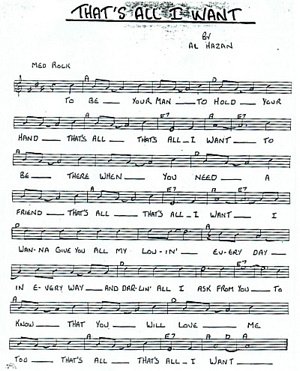 THAT'S ALL I WANT
BY
AL HAZAN
MED ROCK
A D
TO BE — YOUR MAN — TO HOLD — YOUR
A E7
HAND — THAT'S ALL — THAT'S ALL — I WANT — TO
A D
BE — THERE WHEN — YOU NEED — A
A E7 A
FRIEND — THAT'S ALL — THAT'S ALL — I WANT — I
D A
WAN-NA GIVE YOU ALL MY LOV-IN' — EV-ERY DAY —
D E7
IN E-VERY WAY — AND DAR-LIN' ALL I ASK FROM YOU — TO
A D
KNOW — THAT YOU — WILL LOVE — ME
A E7 A D A
TOO — THAT'S ALL — THAT'S ALL — I WANT —